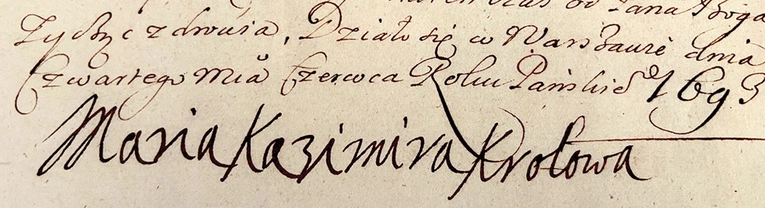 od Pana Boga
Życząc zdrowia, Działo się w Warszawie dnia
Czwartego Mca Czerwca Roku Pańskieᵒ 1693
Maria Kazimira Krolowa